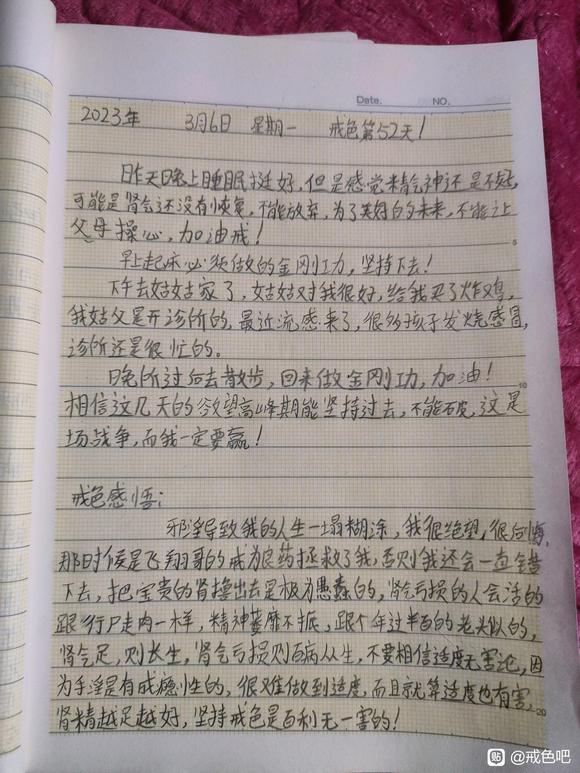 Date. NO.
2023年 3月6日 星期一 戒色第52天!
昨天晚上睡眠挺好,但是感觉精气神还是不好,
可能是肾气还没有恢复,不能放弃,为了美好的未来,不能让
父母操心,加油戒!
早上起床必须做的金刚功,坚持下去!
下午去姑姑家了,姑姑对我很好,给我买了炸鸡,
我姑父是开诊所的,最近流感来了,很多孩子发烧感冒,
诊所还是很忙的。
晚所过后去散步,回来做金刚功,加油!
相信这几天的欲望高峰期能坚持过去,不能破,这是
场战争,而我一定要赢!
戒色感悟:
邪淫导致我的人生一塌糊涂,我很绝望,很后悔,
那时候是飞翔哥的戒为良药拯救了我,否则我还会一直
下去,把宝贵的肾撸出去是极为愚蠢的,肾气亏损的人会活的
跟行尸走肉一样,精神萎靡不振,跟个年过半百的老头似的,
肾气足,则长生,肾气亏损则百病从生,不要相信适度无害论,因
为手淫是有成瘾性的,很难做到适度,而且就算适度也有害,
肾精越足越好,坚持戒色是百利无一害的!
5
10
20
贴 @戒色吧